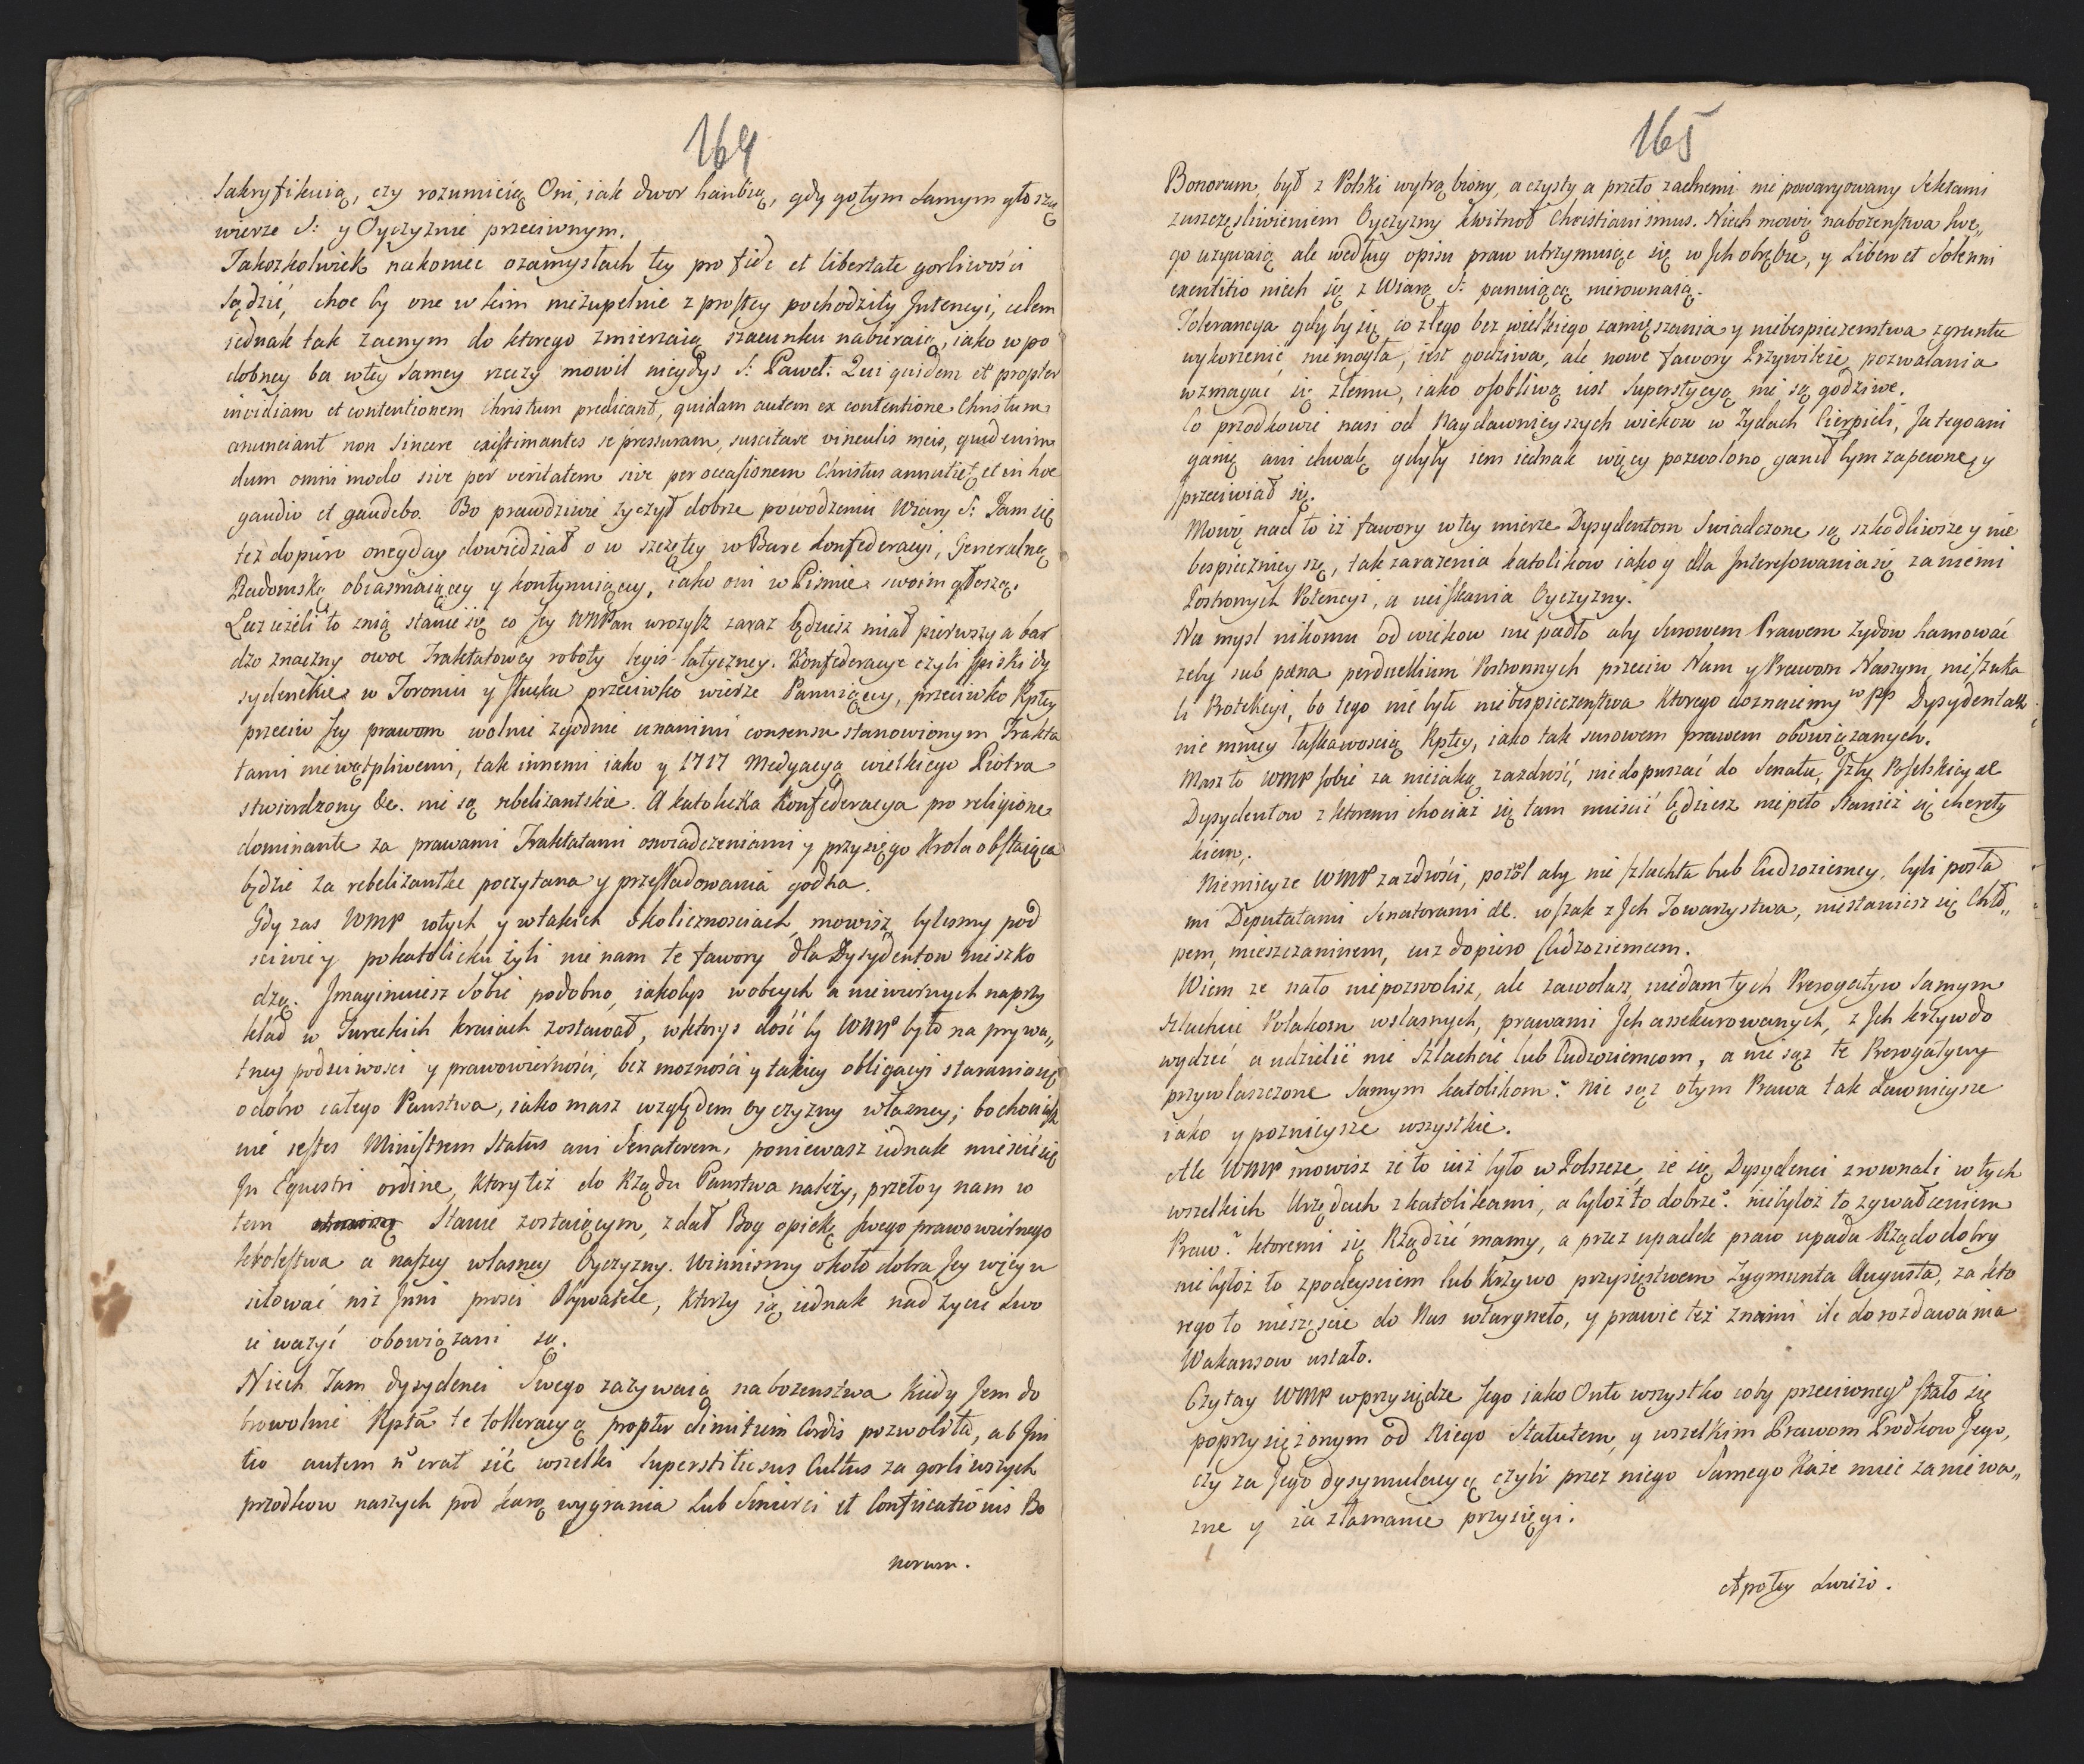 164
Sakryfikuią, czy rozumieią Oni, iak dwor hańbią, gdy go tym samym głoszą
wierze S: y Oyczyznie przeciwnym.
Jakozkolwiek nakoniec ozamysłach tey pro fide et libertate gorliwości
sądzić, choc by one w kim niezupełnie z prostey pochodziły Jntencyi, celem
iednak tak zacnym do ktorego zmierzaią szacunku nabieraią, iako w po
dobney ba wtey samey rzeczy mowił niegdys S: Paweł: Qui quidem et propter
invidiam et contentionem Christum predicant, quidam autem ex contentione Christum
anunciant non Sincere existimantes se pressuram, suscitare vinculis meis, quid enim
dum omni modo sive per veritatem sive per occasionem Christus annutiet, et in hoc
gaudio et gaudebo. Bo prawdziwie zyczył dobrze powodzeniu Wiary S: Jam się
tez dopiro onegday dowiedział o w szczętey w Bare konfederacyi, Generalną
Radomską obiasniaiącey y kontynuiącey, iako oni w Pismie swoim głoszą.
Lecz ieżeli to znią stanie się co Jey WMPan wrozysz zaraz będziesz miał pierwszy a bar
dzo znaczny owoc Traktatowey roboty legis-latyczney. Konfederacye czyli spiski dy
sydenckie w Toroniu y słucku przeciwko wierze Panuiącey, przeciwko Rptey
przeciw Jey prawom wolnie zgodnie unanimi consensu stanowionym Trakta
tami niewątpliwemi, tak innemi iako y 1717 Medyacyą wielkiego Piotra
stwierdzony &c. nie są rebelizantskie. A katolicka Konfederacya pro religione
dominante za prawami Traktatami oswiadczeniami y przysięgo Krola obstaiąca
będzie za rebelizantkę poczytana y przesladowania godna.
Gdy zas WMP wtych y wtakich okolicznosciach, mowisz, bylesmy pod
sciwie y pokatolicku żyli nie nam te fawory dla Dysydentow nieszko
dzą. Jmaginuiesz sobie podobno, iakobys wobcych a niewiernych naprzy
kład w Tureckich kraiach zostawał, wktorys dość by WMP było na prywa„
tney podsciwosci y prawowierności, bez mozności y takiey obligacyi starania się
o dobro całego Panstwa, iako masz względem oyczyzny własney; bo chociasz
nie iestes Ministrem Status ani Senatorem, poniewasz iednak miescisz się
Jn Equestri ordine, ktory też do Rządu Panstwa należy, przeto y nam w
tem Stanie zostaiącym, zdał Bog opiekę swego prawowiernego
krolestwa a naszey własney Oyczyzny. Winnismy około dobra Jey więcy u
siłować niz Jnni prosci Obywatele, ktorzy ią iednak nad zycie swo
ie ważyć obowiązani są.
Niech Jam dysydenci Swego zazywaią nabozenstwa kiedy Jem do
browolnie Rpta te tolleracyą propter dimitriem Cordis pozwoliła, ab Jni
tio autem ñ erat sić wszelki Superstitiosus Cultus za gorliwszych
przodkow naszych pod karą wygnania Lub Smierci et Confiscationis Bo
norum.
165
Bonorum, był z Polski wytrąbiony, a czysty a przeto zadnemi nie powaryowany Sektami
zuszczęsliwieniem Oyczyzny kwitnoł Christianismus. Niech mowię nabożenstwa swe„
go uzywaią ale według opisu praw utrzymuiąc się w Jch obrębie, y Libero et Solenni
exentitio niech się z Wiarą S: panuiącą nierownaią.
Tolerancya gdyby się co złego bez wielkiego zamięszania y niebespieczenstwa zgruntu
wykorzenić niemogła, iest godziwa, ale nowe fawory Przywileie, pozwalania
wzmagać się złemu, iako osobliwą iest Superstycyą nie są godziwe.
Co przodkowie nasi od Naydawnieyszych wiekow w Zydach Cierpieli, Ja tego ani
ganię ani chwalę gdyby iem iednak więcy pozwolono ganił bym zapewne, y
sprzeciwiał się.
Mowię nad to iż fawory wtey mierze Dysydentom Swiadczone są szkodliwsze y nie
bespiecznieysze, tak zarażenia katolikow iako y dla Jnteresowania się za niemi
Postronych Potencyi, a ucisкania Oyczyzny.
Na mysl nikomu od wiekow nie padło aby Surowem Prawem Zydow hamować
zeby sub pæna perduellium Postronnych przeciw Nam y Prawom Naszym, nieszuka
li Protekcyi, bo tego nie było niebespieczenstwa ktorego doznaiemy w PP Dysydentach
nie mniey łaskawoscią Rptey, iako tak surowem prawem obowiązanych.
Masz to WMP sobie za nieiaką zazdrość, niedopuszać do Senatu, Jzby Poselskiey &c
Dysydentow z ktoremi chociaż się tam miescić będziesz nie prto staniesz się cherety
kiem.
Niemieysze WMP zazdrości, pozol aby nie szlachta lub Cudzoziemcy, byli posła
mi Deputatami Senatorami &c. wszak z Jch Towarzystwa, niestaniesz się Chło„
pem, mieszczaninem, cuz dopiero Cudzoziemcem.
Wiem ze nato niepozwolisz, ale zawołasz, niedam tych Prerogatyw samym
szlachcie Polakom własnych, prawami Jch assekurowanych, z Jch krzywdo
wydzieć a udzielić nie szlachcie lub Cudzoziemcom, a nie sąż te Prerogatywy
przywłaszczone samym katolikom? Nie sąz otym Prawa tak dawnieysze
iako y pozniejsze wszystkie.
Ale WMP mowisz że to iuż było w Polszcze, że się Dysydenci zrownali w tych
wszelkich Urzędach z katolikami, a byloż to dobrze? niebyloż to zgwałceniem
Praw? ktoremi się Rządzić mamy, a przez upadek praw upada Rządo dobry
niebyłoż to zpodeysciem lub krzywo przysięstwem Zygmunta Augusta, za kto
rego to nieszęscie do Nas wtargneło, y prawie też znaimi ile do rozdawania
Wakansow ustało.
Czytay WMP wprzysiędze Jego iako Onto wszystko coby przeciwnego stało się
poprzysiężonym od Niego Statutem, y wszelkim Prawom Przodkow Jego,
czy za Jego dysymulacyą czyli przez niego Samego każe mieć zanieważ„
ne y za złamanie przysięgi.